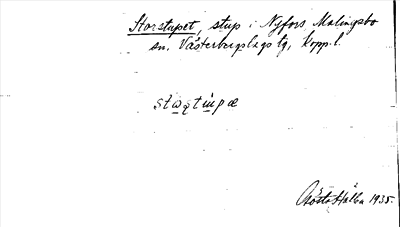 Storstupet, stup i Nyfors Malingsbo
sn. Västerbergslags tg, Kopp. l.
Gösta Hälba 1935.